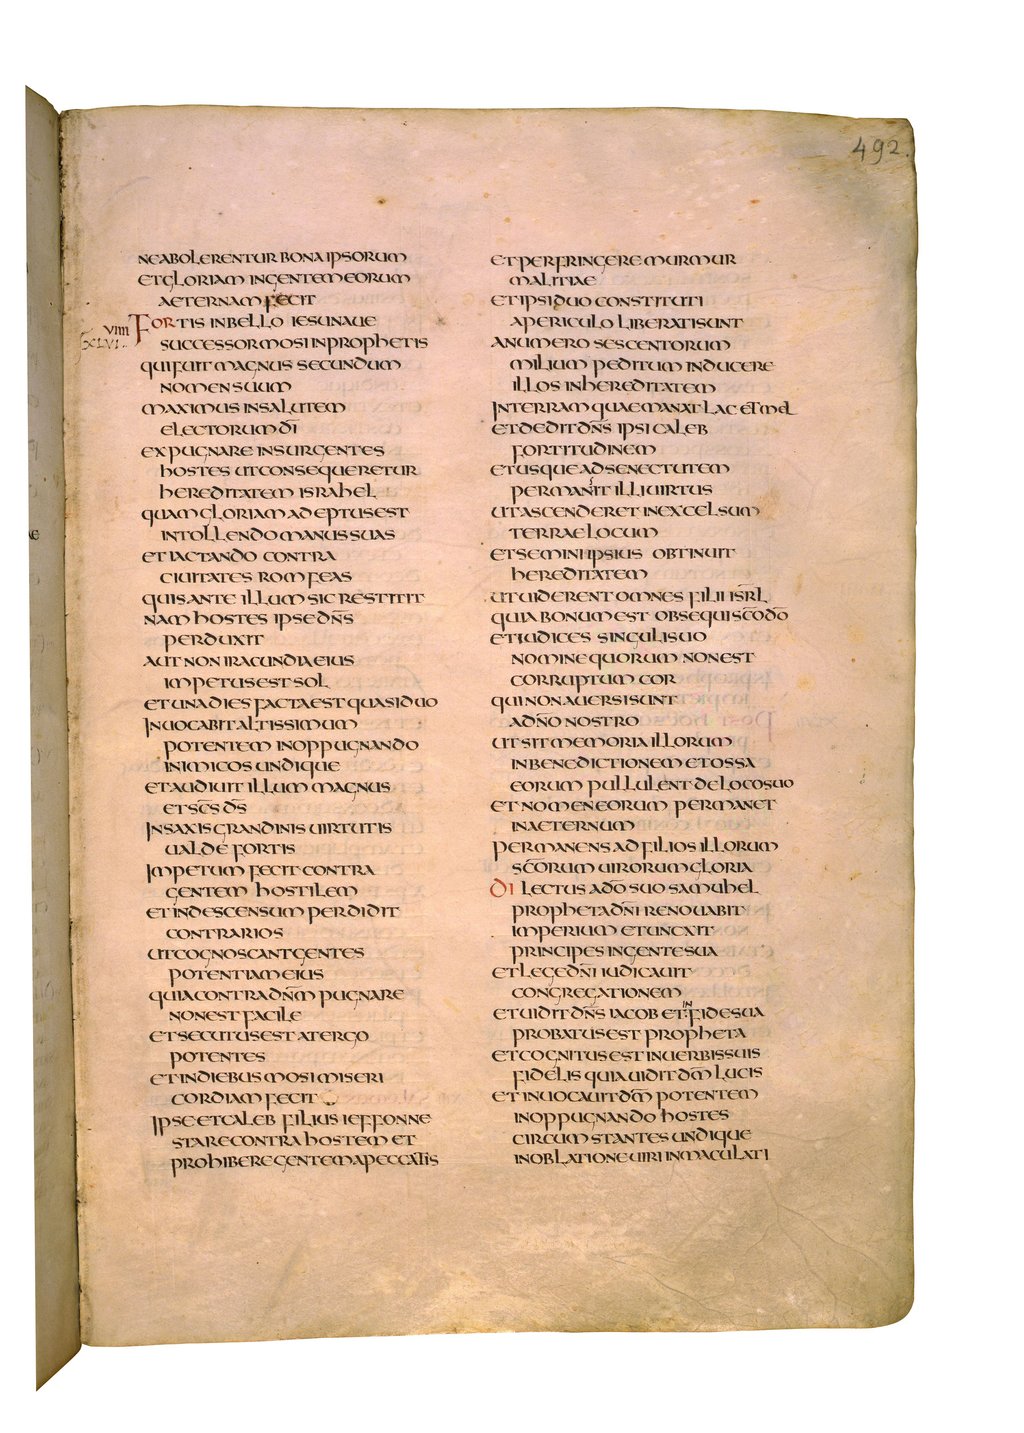 492.
NE ABOLERENTUR BONA IPSORUM
ET GLORIAM INGENTEM EORUM
AETERNAM FECIT
VIIII FORTIS IN BELLO IESU NAUE
XLVI SUCCESSOR MOSI IN PROPHETIS
QUI FUIT MAGNUS SECUNDUM
NOMEN SUUM
MAXIMUS IN SALUTEM
ELECTORUM D̅I̅
EXPUGNARE INSURGENTES
HOSTES UT CONSEQUERETUR
HEREDITATEM ISRAHEL
QUAM GLORIAM ADEPTUS EST
IN TOLLENDO MANUS SUAS
ET IACTANDO CONTRA
CIUITATES ROMFEAS
QUIS ANTE ILLUM SIC RESTITIT
NAM HOSTES IPSE D̅N̅S̅
PERDUXIT
AUT NON IRACUNDIA EIUS
IMPETUS EST SOL
ET UNA DIES FACTA EST QUASI DUO
INUOCABIT ALTISSIMUM
POTENTEM IN OPPUGNANDO
INIMICOS UNDIQUE
ET AUDIUIT ILLUM MAGNUS
ET S̅C̅S̅ D̅S̅
IN SAXIS GRANDINIS UIRTUTIS
UALDE FORTIS
IMPETUM FECIT CONTRA
GENTEM HOSTILEM
ET IN DESCENSUM PERDIDIT
CONTRARIOS
UT COGNOSCANT GENTES
POTENTIAM EIUS
QUIA CONTRA D̅N̅M̅ PUGNARE
NON EST FACILE
ET SECUTUS EST A TERGO
POTENTES
ET IN DIEBUS MOSI MISERI
CORDIAM FECIT
IPSE ET CALEB FILIUS IEFFONNE
STARE CONTRA HOSTEM ET
PROHIBERE GENTEM A PECCATIS
ET PERFRINGERE MURMUR
MALITIAE
ET IPSI DUO CONSTITUTI
A PERICULO LIBERATI SUNT
A NUMERO SESCENTORUM
MILIUM PEDITUM INDUCERE
ILLOS IN HEREDITATEM
IN TERRAM QUAE MANAT LAC ET MEL
ET DEDIT D̅N̅S̅ IPSI CALEB
FORTITUDINEM
ET USQUE AD SENECTUTEM
PERMANSIT ILLI UIRTUS
UT ASCENDERET IN EXCELSUM
TERRAE LOCUM
ET SEMINI IPSIUS OBTINUIT
HEREDITATEM
UT UIDERENT OMNES FILII I̅S̅R̅L̅
QUIA BONUM EST OBSEQUI S̅C̅O̅ D̅O̅
ET IUDICES SINGULI SUO
NOMINE QUORUM NON EST
CORRUPTUM COR
QUI NON AUERSI SUNT
A D̅N̅O̅ NOSTRO
UT SIT MEMORIA ILLORUM
IN BENEDICTIONEM ET OSSA
EORUM PULLULENT DE LOCO SUO
ET NOMEN EORUM PERMANET
IN AETERNUM
PERMANENS AD FILIOS ILLORUM
S̅C̅ORUM UIRORUM GLORIA
DILECTUS A D̅O̅ SUO SAMUHEL
PROPHETA D̅N̅I̅ RENOUABIT
IMPERIUM ET UNCXIT
PRINCIPES IN GENTE SUA
ET LEGE D̅N̅I̅ IUDICAUIT
CONGREGATIONEM
ET UIDIT D̅N̅S̅ IACOB ET IN FIDE SUA
PROBATUS EST PROPHETA
ET COGNITUS EST IN UERBIS SUIS
FIDELIS QUIA UIDIT D̅M̅ LUCIS
ET INUOCAUIT D̅M̅ POTENTEM
IN OPPUGNANDO HOSTES
CIRCUM STANTES UNDIQUE
IN OBLATIONE UIRI INMACULATI